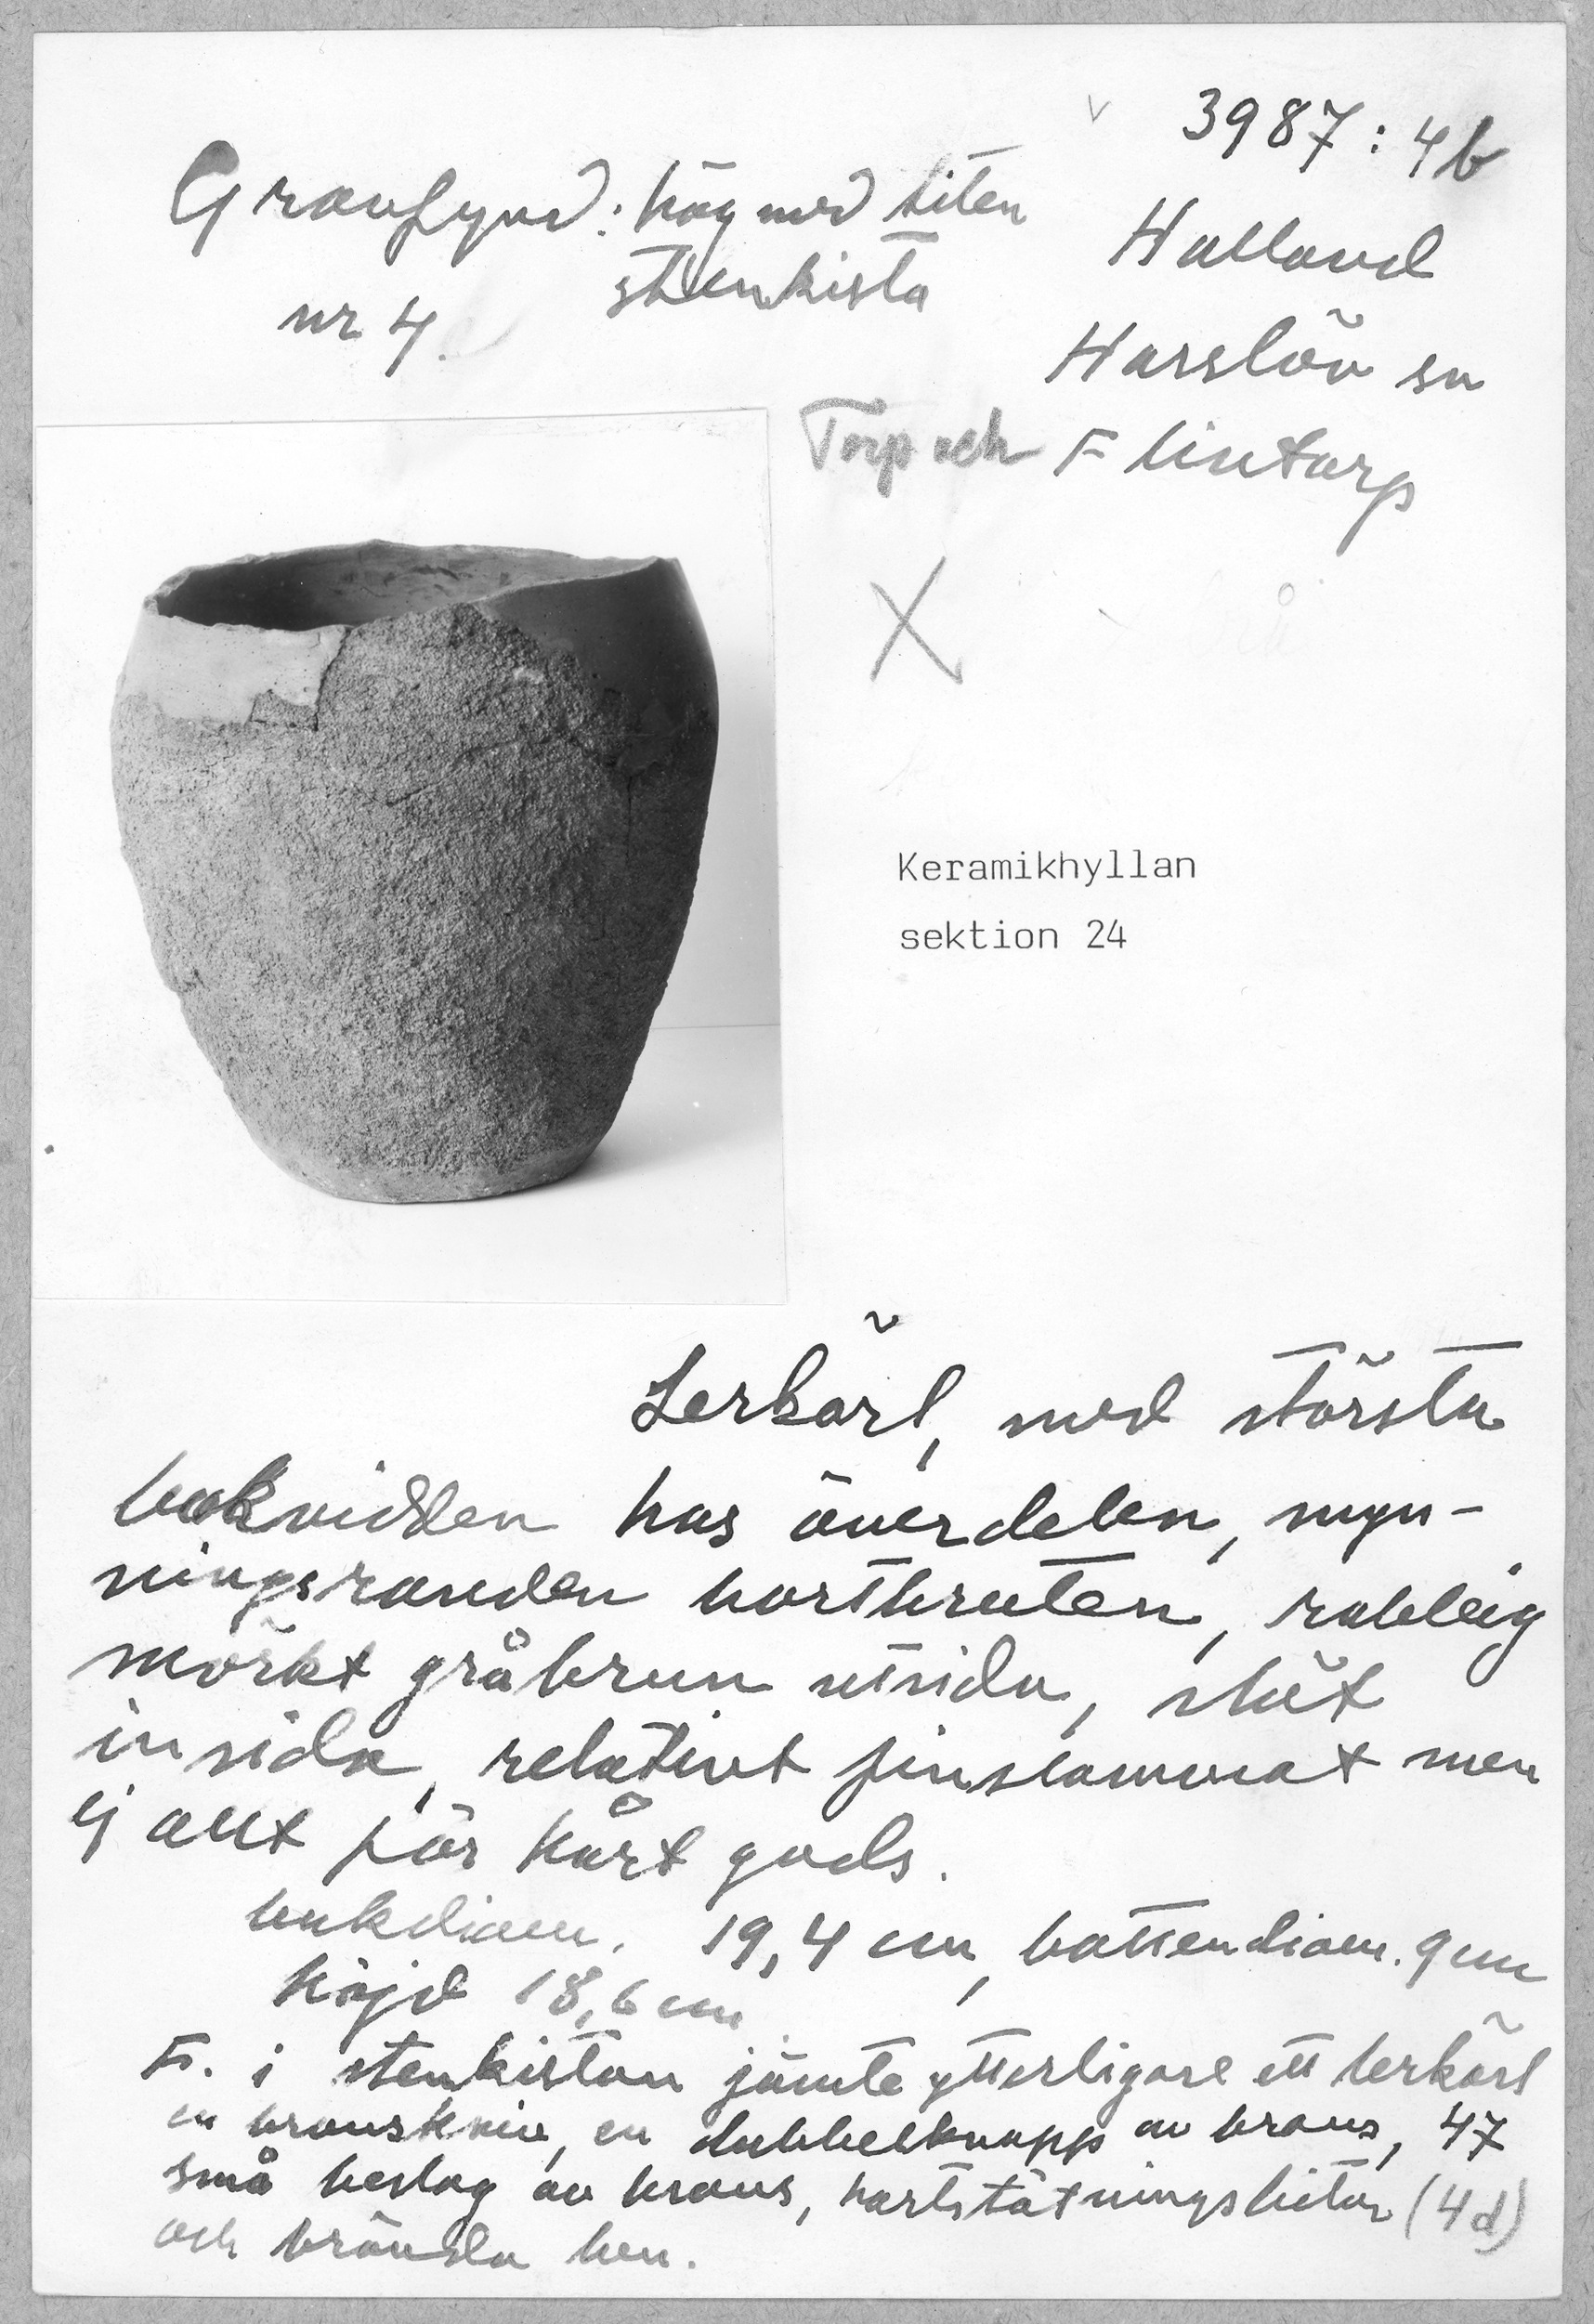 3987:4b
Gravfynd: hög med liten
stenkista
nr 4.
Halland
Harslöv sn
Torp och Flintarp
X
Keramikhyllan
sektion 24
Lerkärl, med största
bukvidden hos överdelen, myn-
ningsranden bortbruten, rabbig
mörkt gråbrun utsida, slät
insida, relativt finslammat men
ej allt för hårt gods.
bukdiam. 19,4 cm, bottendiam. 9 cm
höjd 18,6 cm
F. i stenkistan jämte ytterligare ett lerkärl
en bronskniv, en dubbelknapp av brons, 47
små beslag av brons, hartstätningsbitar (4d)
och brända ben.